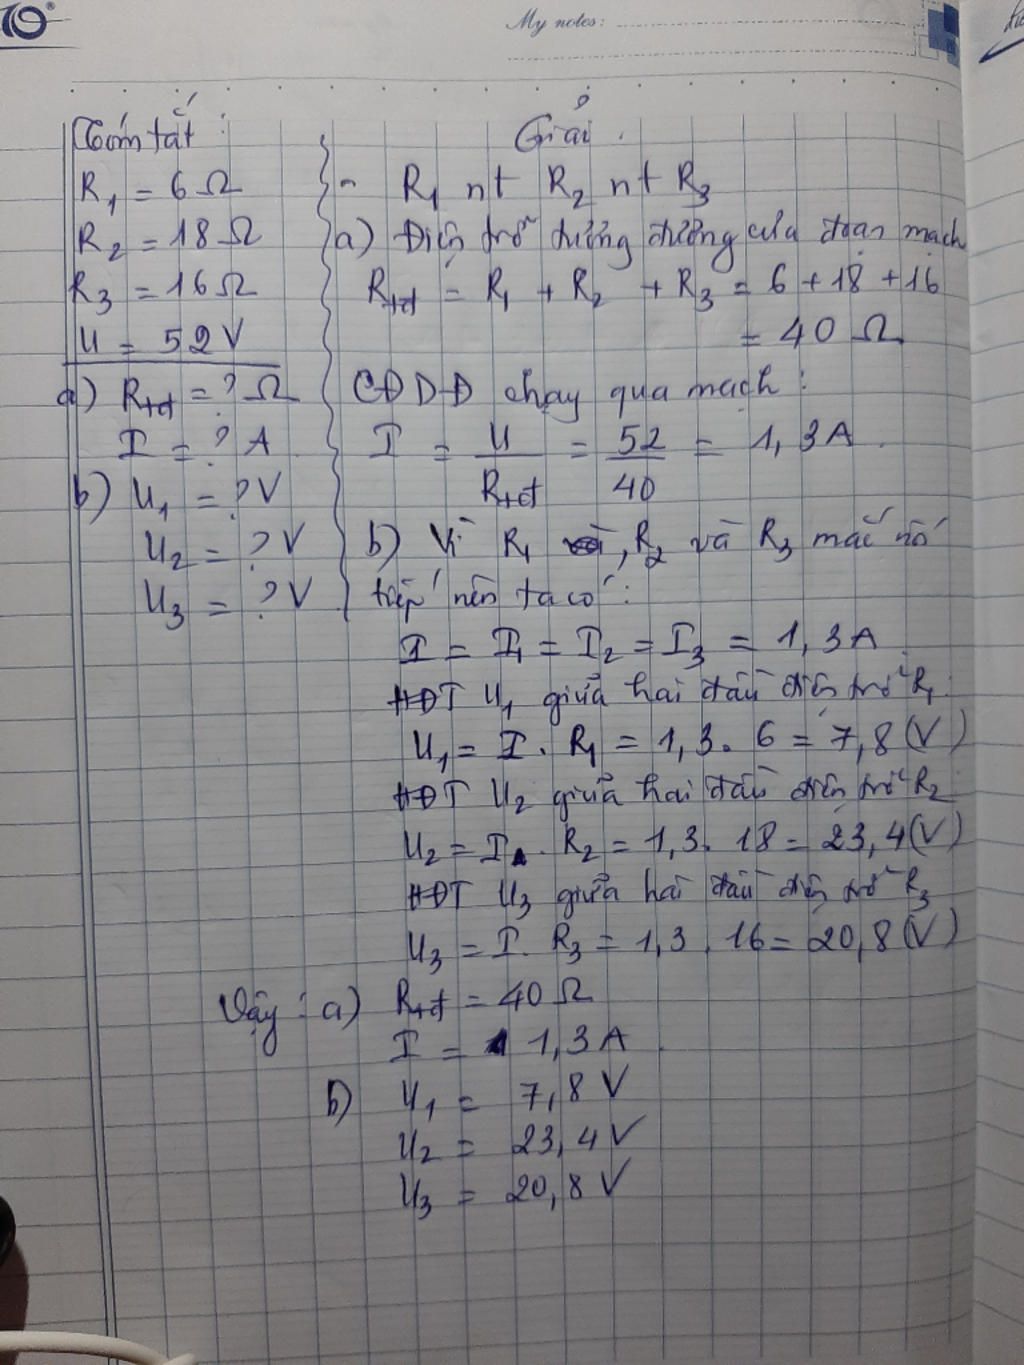 My notes:
Tóm tắt:
R1 = 6 Ω
R2 = 18 Ω
R3 = 16 Ω
U = 52 V
a) Rtđ = ? Ω
I = ? A
b) U1 = ? V
U2 = ? V
U3 = ? V
Giải.
- R1 nt R2 nt R3
a) Điện trở tương đương của đoạn mạch
Rtđ = R1 + R2 + R3 = 6 + 18 + 16
= 40 Ω
CĐDĐ chạy qua mạch:
I = U / Rtđ = 52 / 40 = 1,3 A.
b) Vì R1, R2 và R3 mắc nối
tiếp nên ta có:
I = I1 = I2 = I3 = 1,3 A.
HĐT U1 giữa hai đầu điện trở R1:
U1 = I. R1 = 1,3. 6 = 7,8 (V)
HĐT U2 giữa hai đầu điện trở R2
U2 = I. R2 = 1,3. 18 = 23,4 (V)
HĐT U3 giữa hai đầu điện trở R3
U3 = I. R3 = 1,3. 16 = 20,8 (V)
Vậy: a) Rtđ = 40 Ω
I = 1,3 A.
b) U1 = 7,8 V
U2 = 23,4 V
U3 = 20,8 V